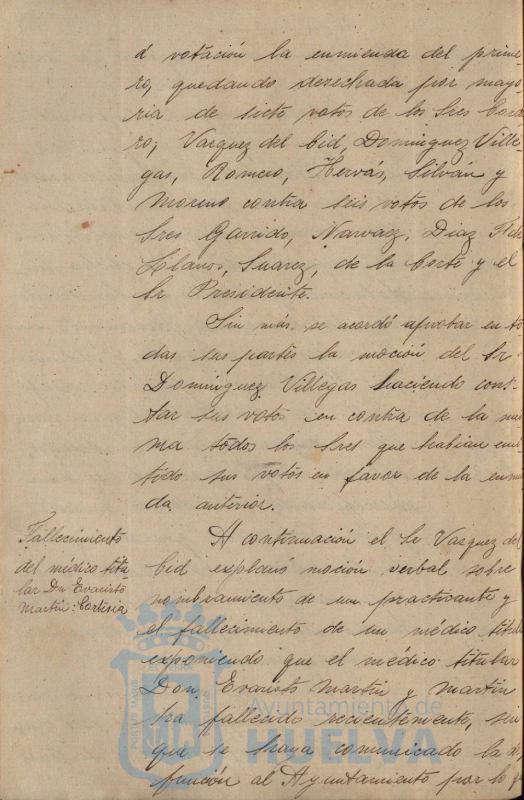 á votación la enmienda del prime-
ro, quedando desechada por mayo-
ria de siete votos de los Sres
ro, Vazquez del Cid, Dominguez Ville-
gas, Romero, Hervás, Silván y
Moreno contra seis votos de los
Sres Garrido, Narvaez, Diaz F. de
Llanos, Suarez, de la Corte y el
Sr Presidente.
Sin más se acordó aprobar en to
das sus partes la moción del Sr
Dominguez Villegas haciendo cons-
tar sus votos en contra de la mis
ma todos los Sres que habian emi
tido sus votos en favor de la enmien
da anterior.
Fallecimiento
del médico titu
lar Dn Evaristo
Martin: Cortesia
A continuación el Sr Vazquez del
Cid explanó moción verbal sobre
nombramiento de un practicante y
el fallecimiento de un médico titul
exponiendo que el médico titular
Don Evaristo Martin y Martin
ha fallecido recientemente, sin
que se haya comunicado la de
función al Ayuntamiento por lo
Ayuntamiento de
HUELVA